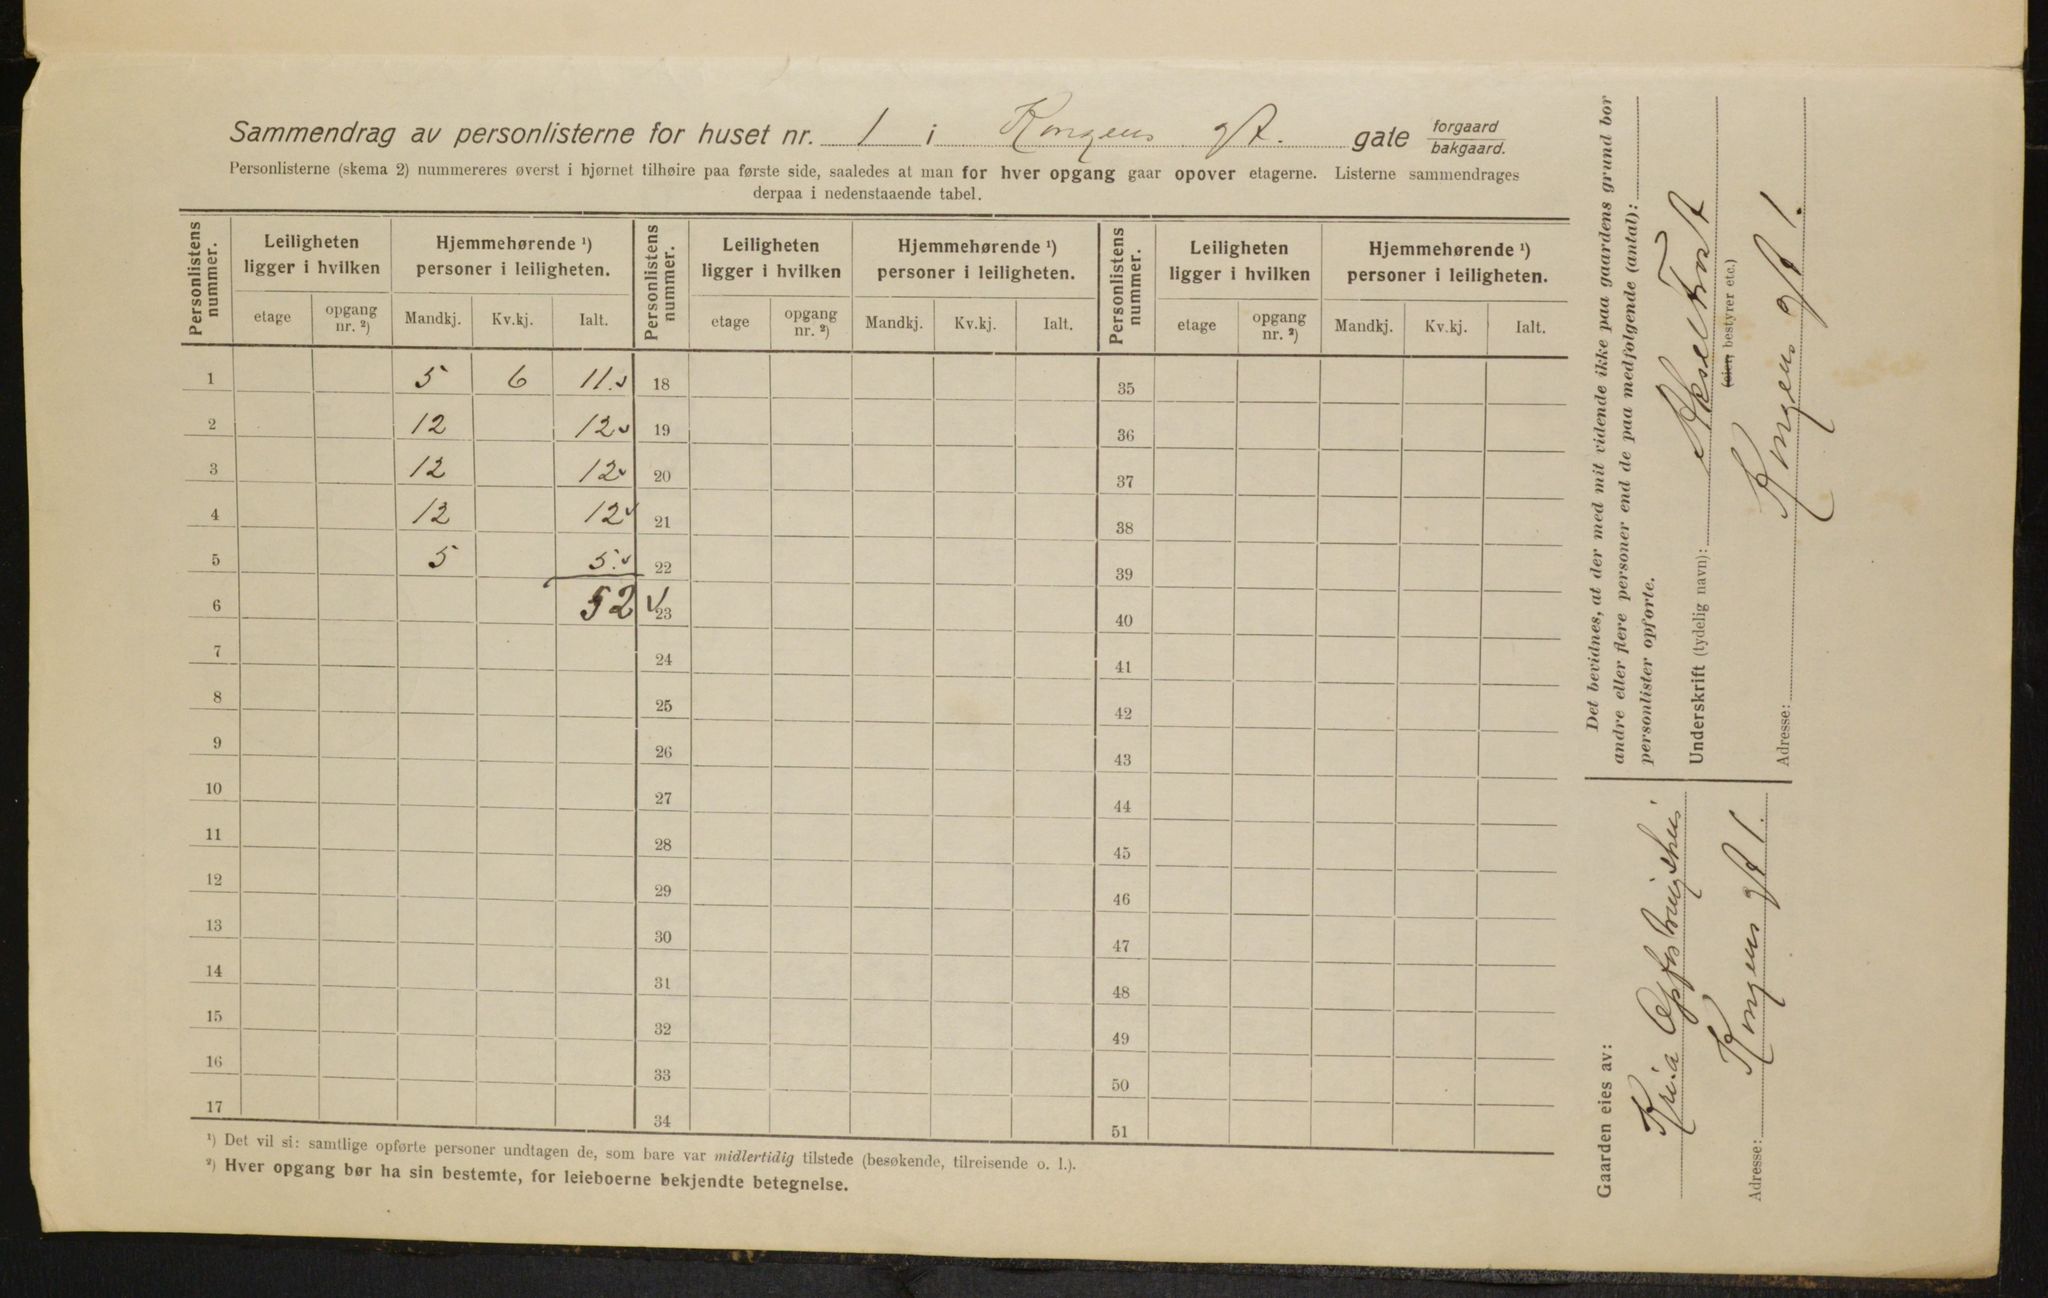 Sammendrag av personlisterne for huset nr. 1 i Kongens gt. gate forgaard bakgaard.
Personlisterne (skema 2) nummereres øverst i hjørnet tilhøire paa første side, saaledes at man for hver opgang gaar opover etagerne. Listerne sammendrages
derpaa i nedenstaaende tabel.
Personlistens nummer. Leiligheten ligger i hvilken Hjemmehørende ¹) personer i leiligheten. Personlistens nummer. Leiligheten ligger i hvilken Hjemmehørende ¹) personer i leiligheten. Personlistens nummer. Leiligheten ligger i hvilken Hjemmehørende ¹) personer i leiligheten.
etage opgang nr. ²) Mandkj. Kv.kj. Ialt. etage opgang nr. ²) Mandkj. Kv.kj. Ialt. etage opgang nr. ²) Mandkj. Kv.kj. Ialt.
1 5 6 11. 18 35
2 12 12 19 36
3 12 12 20 37
4 12 12 21 38
5 5 5. 22 39
6 52 23 40
7 24 41
8 25 42
9 26 43
10 27 44
11 28 45
12 29 46
13 30 47
14 31 48
15 32 49
16 33 50
17 34 51
¹) Det vil si: samtlige opførte personer undtagen de, som bare var midlertidig tilstede (besøkende, tilreisende o. l.).
²) Hver opgang bør ha sin bestemte, for leieboerne bekjendte betegnelse.
Det bevidnes, at der med mit vidende ikke paa gaardens grund bor
andre eller flere personer end de paa medfølgende (antal):
personlister opførte.
Underskrift (tydelig navn): Aksel Frost
(eier, bestyrer etc.)
Adresse: Kongens gt 1.
Gaarden eies av:
Kria Opfostringshus
Adresse: Kongens gt 1.